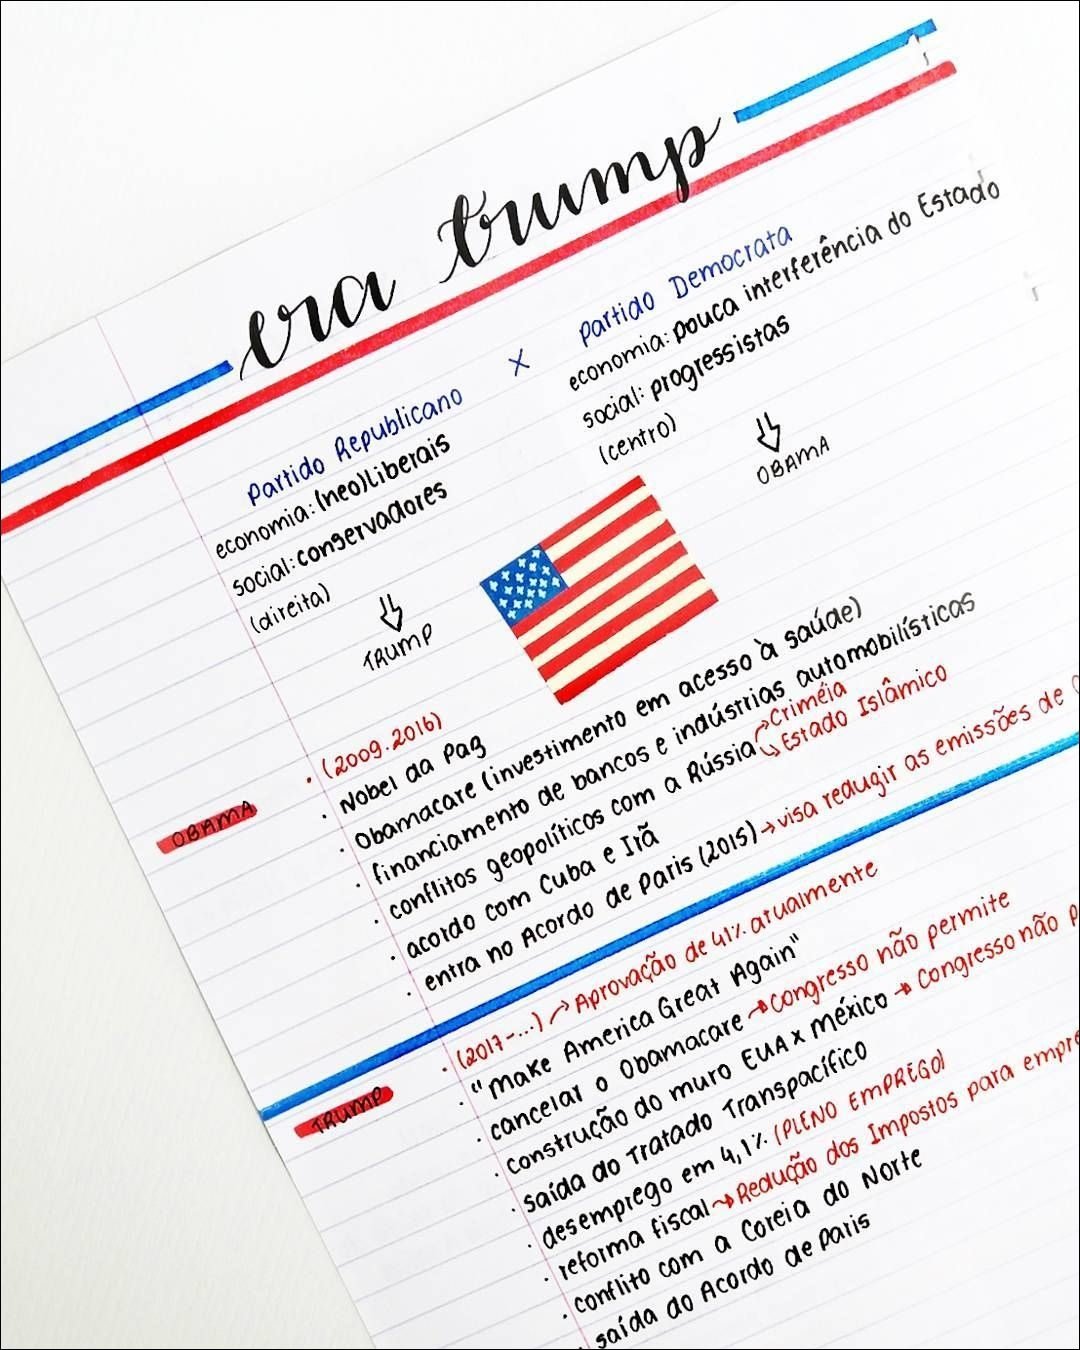 era trump
Partido Republicano x Partido Democrata
economia: (neo)liberais
social: conservadores
(direita)
TRUMP
economia: pouca interferência do Estado
social: progressistas
(centro)
OBAMA
OBAMA
· (2009.2016)
· Nobel da Paz
· Obamacare (investimento em acesso à saúde)
· financiamento de bancos e indústrias automobilísticas
· conflitos geopolíticos com a Rússia → Criméia
→ Estado Islâmico
· acordo com Cuba e Irã
· entra no Acordo de Paris (2015) → visa reduzir as emissões de
TRUMP
· (2017-...) → Aprovação de 41% atualmente
· "Make America Great Again"
· cancelar o Obamacare → Congresso não permite
· construção do muro EUA x México → Congresso não
· saída do Tratado Transpacífico
· desemprego em 4,1% (PLENO EMPREGO)
· reforma fiscal → Redução dos Impostos para
· conflito com a Coreia do Norte
· saída do Acordo de Paris